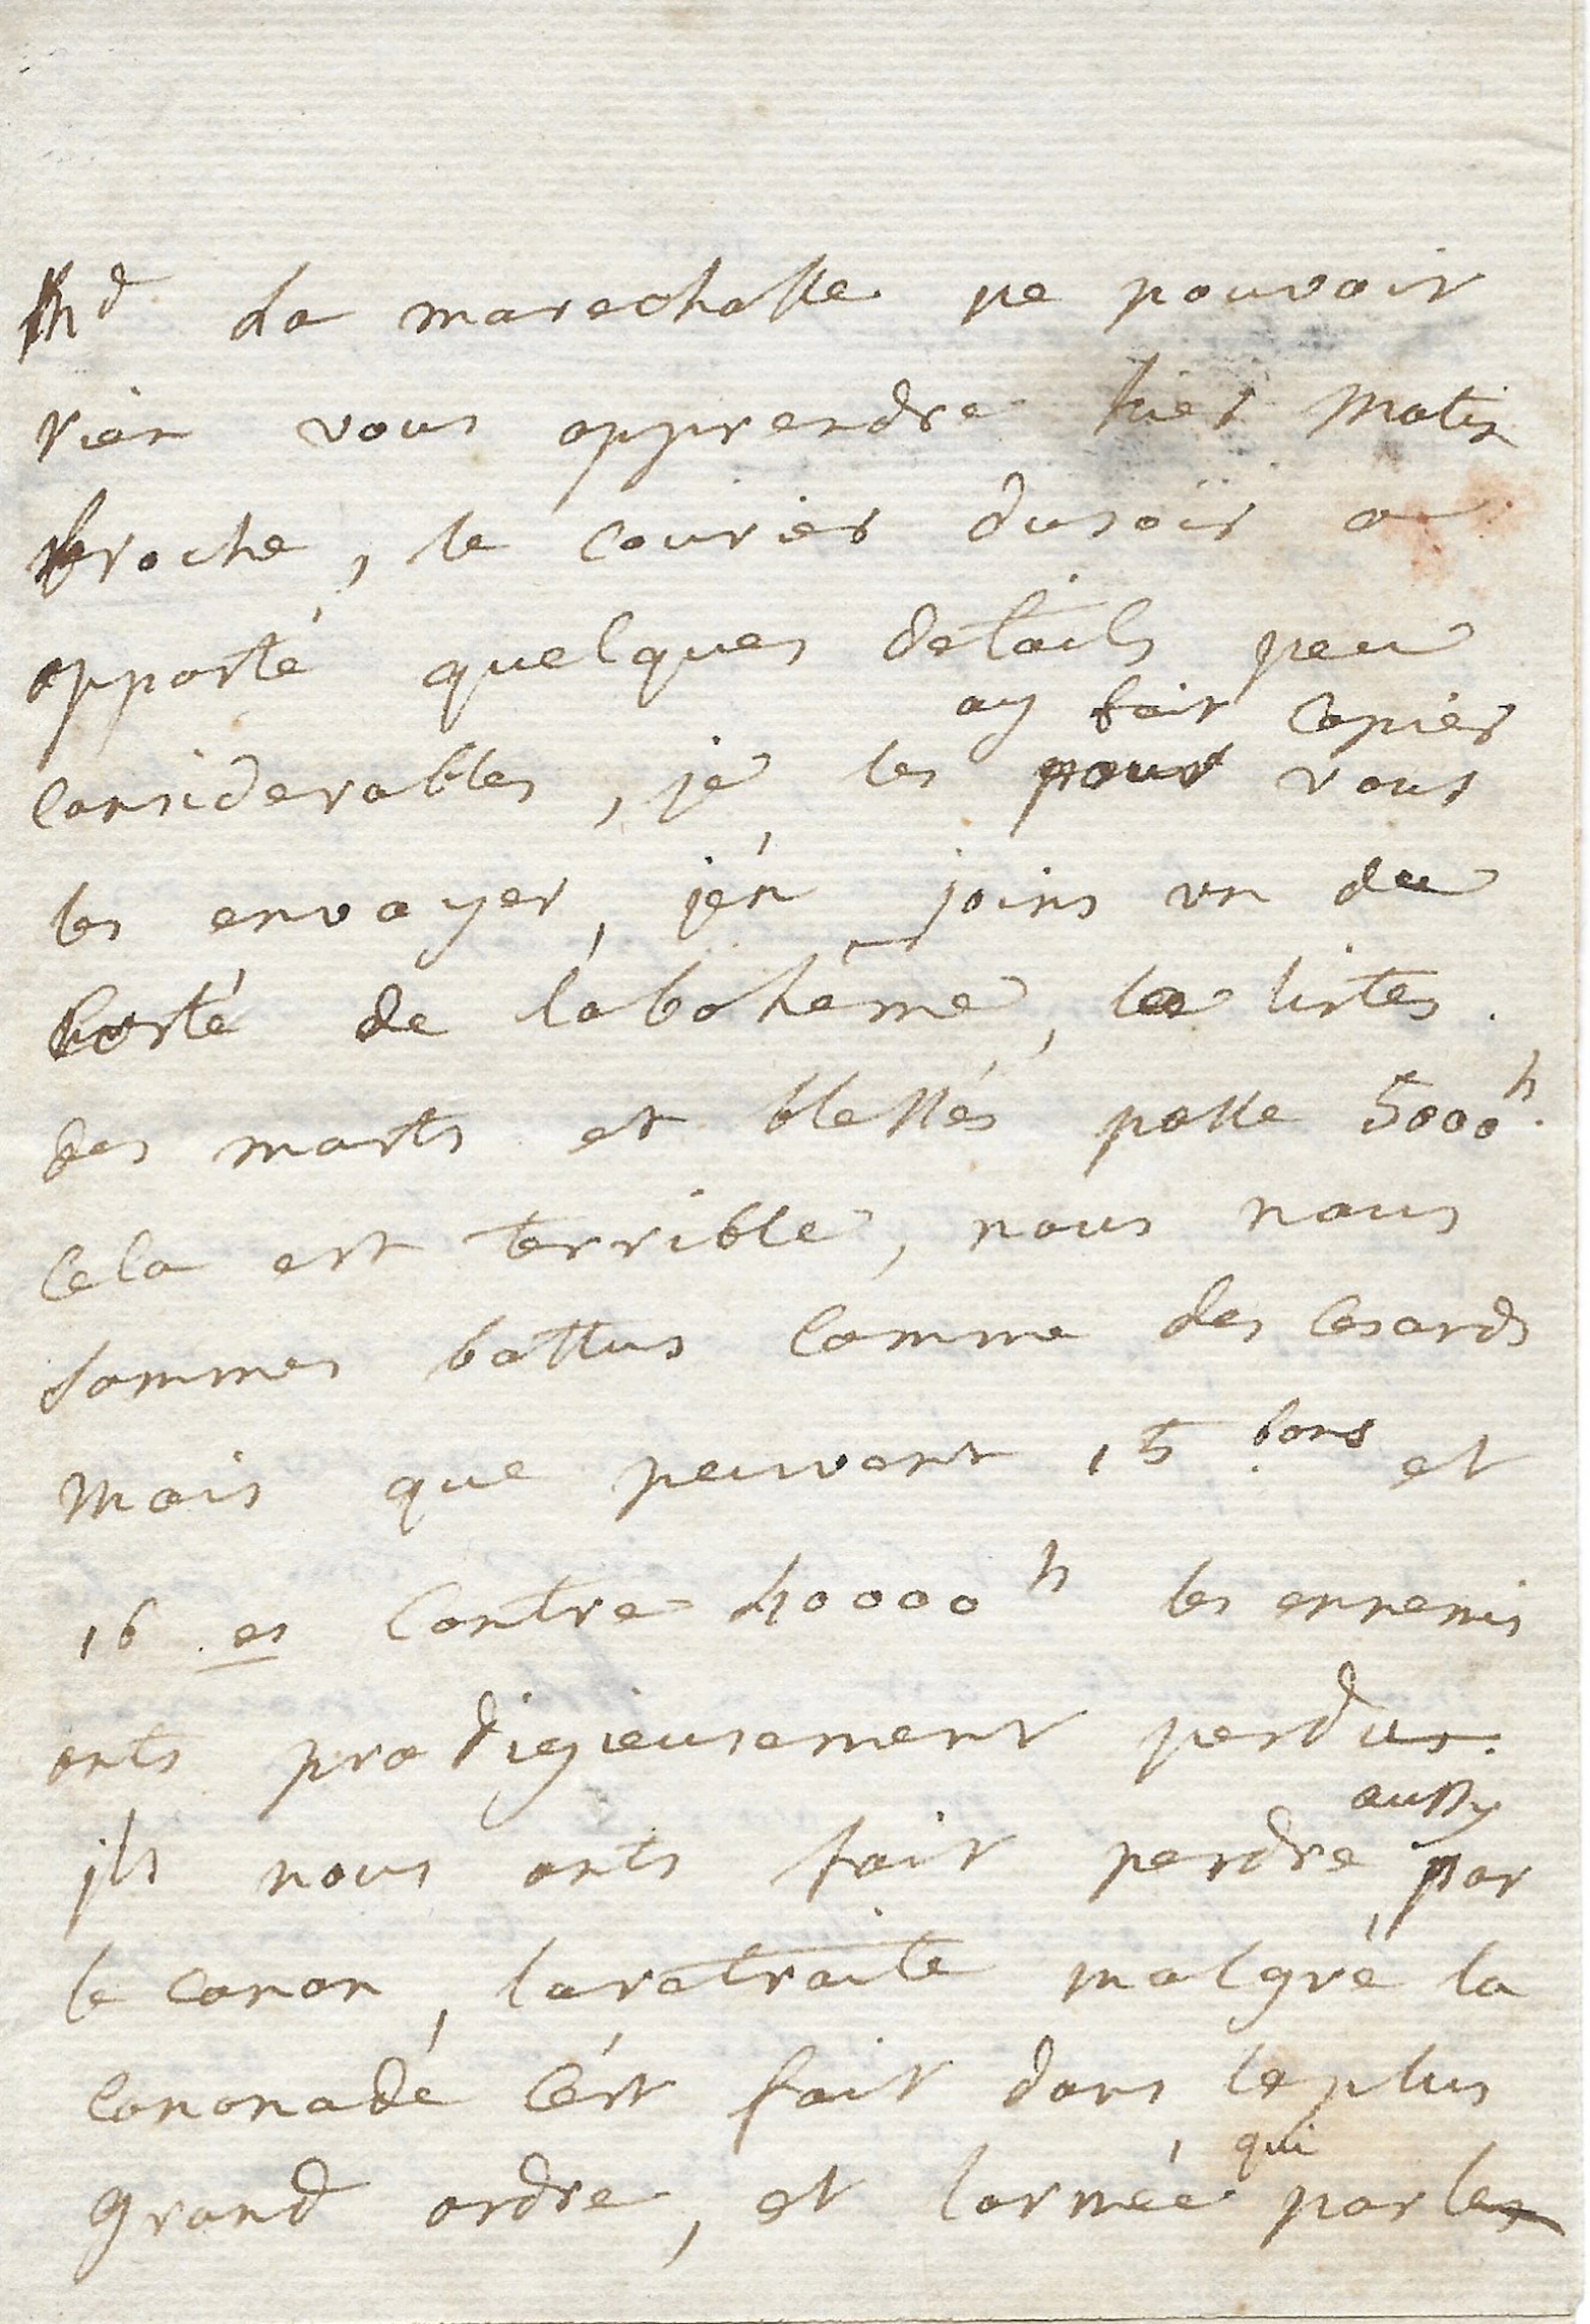 Md La marechalle ne pouvoit
rien vous apprendre hier matin
broche, le courier dusoir a
apporté quelques details peu
ay fait copier
considerables, je les pour vous
les envoyer, j'en joins un du
costé de la bohéme, les listes
des morts et blessés passe 5000h.
Cela est terrible, nous nous
sommes battus comme des Cesards
mais que peuvent 15 bons et
16 es contre 40000h les ennemis
onts prodigieusement perdus.
aussy
ils nous onts fait perdre par
le canon, laretraite malgré la
canonadé c'est fait dans le plus
grand ordre, et larmée qui par les